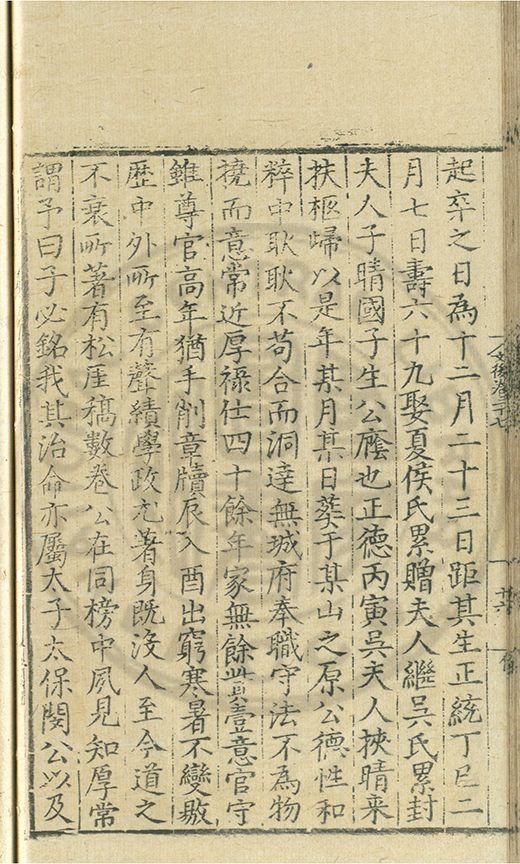 起卒之日為十二月二十三日距其生正統丁巳二
月七日壽六十九娶夏侯氏累贈夫人繼吳氏累封
夫人子晴國子生公廕也正德丙寅吳夫人挾晴来
扶柩歸以是年某月某日葬于某山之原公德性和
粹中耿耿不苟合而洞達無城府奉職守法不為物
撓而意常近厚祿仕四十餘年家無餘貲壹意官守
雖尊官高年猶手削章牘辰入酉出窮寒暑不變敭
歷中外所至有聲績學政尤著身既沒人至今道之
不衰所著有松厓稿數卷公在同榜中夙見知厚常
謂予曰子必銘我其治命亦屬太子太保閔公以及
文後卷二十七
廿六